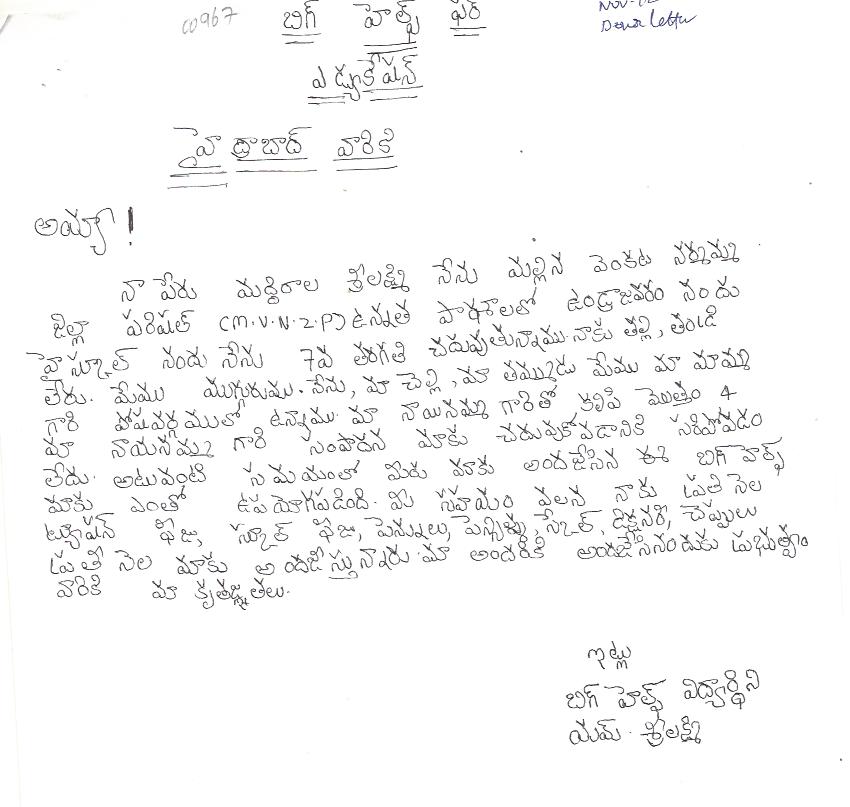 00967 బిగ్ హెల్ప్ ఫర్
Donor Letter
ఎడ్యుకేషన్
హైద్రాబాద్ వారికి
అయ్యా!
నా పేరు మద్దిరాల శ్రీలక్ష్మి నేను మల్లిన వెంకట నర్సమ్మ
జిల్లా పరిషత్ (M.V.N.Z.P) ఉన్నత పాఠశాలలో ఉండ్రాజవరం నందు
హైస్కూల్ నందు నేను 7వ తరగతి చదువుతున్నాము. నాకు తల్లి, తండ్రి
లేరు. మేము ముగ్గురుము. నేను, మా చెల్లి, మా తమ్ముడు మేము మా మామ్మ
గారి పోషవర్గములో ఉన్నాము. మా నాయినమ్మ గారితో కలిపి మొత్తం 4
మా నాయనమ్మ గారి సంపాదన మాకు చదువుకోవడానికి సరిపోవడం
లేదు. అటువంటి సమయంలో మీరు మాకు అందజేసిన ఈ బిగ్ హెల్ప్
మాకు ఎంతో ఉపయోగపడింది. మీ సహాయం వలన నాకు ప్రతి నెల
ట్యూషన్ ఫీజు, స్కూల్ ఫీజు, పెన్నులు, పెన్సిళ్ళు, స్కేల్, డిక్షనరి, చెప్పులు
ప్రతి నెల మాకు అందజేస్తున్నారు. మా అందరికి అందజేసినందుకు ప్రభుత్వం
వారికి మా కృతజ్ఞతలు.
ఇట్లు
బిగ్ హెల్ప్ విద్యార్థిని
యమ్. శ్రీలక్ష్మి